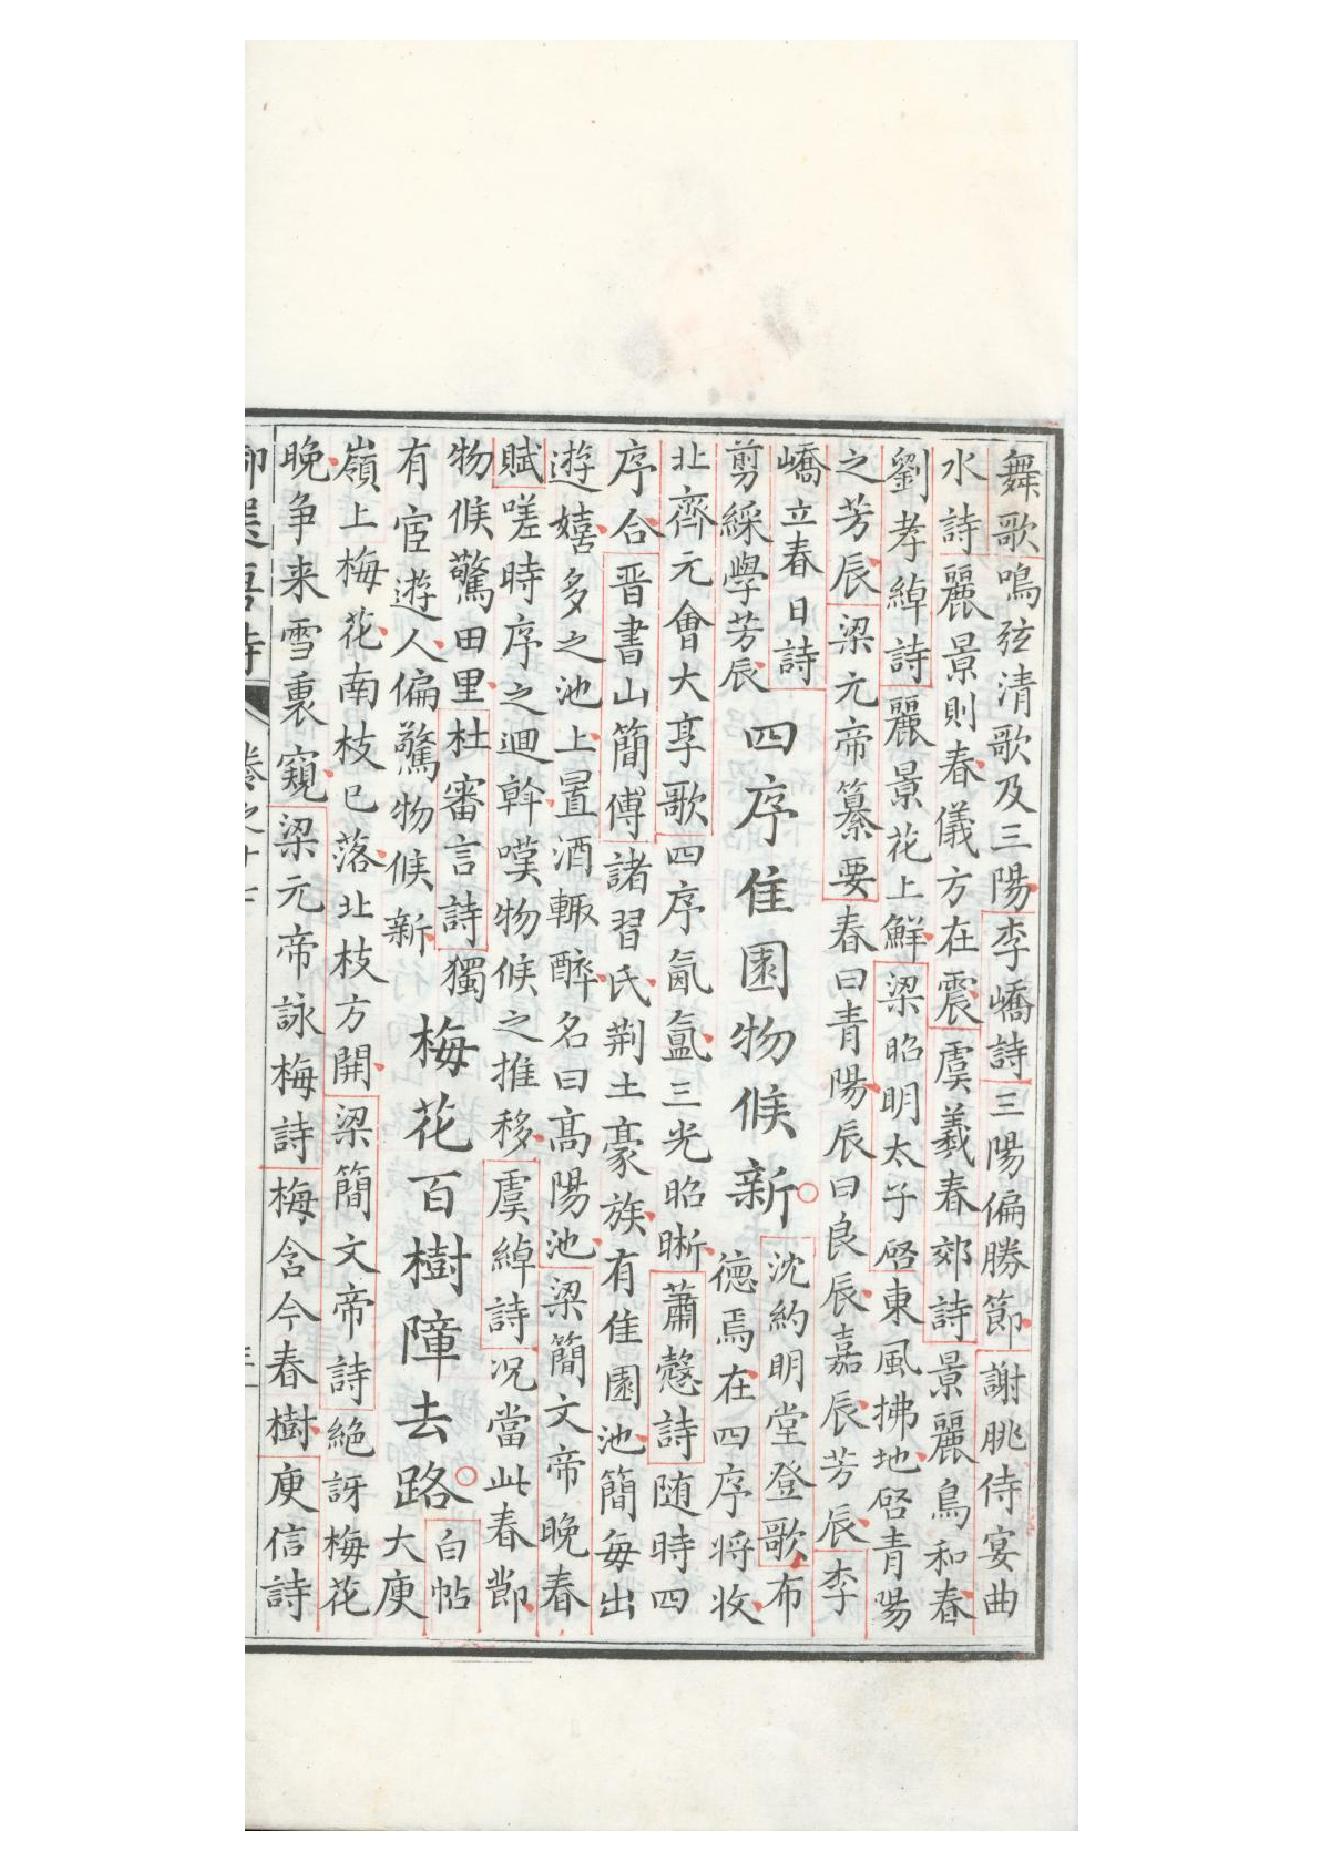 舞歌鳴弦清歌及三陽李嶠詩三陽偏勝節謝朓侍宴曲
水詩麗景則春儀方在震虞羲春郊詩景麗鳥和春
劉孝綽詩麗景花上鮮梁昭明太子啓東風拂地啓青陽
之芳辰梁元帝纂要春曰青陽辰曰良辰嘉辰芳辰李
嶠立春日詩
剪綵學芳辰
四序佳園物候新
沈約明堂登歌布
德焉在四序將收
北齊元會大享歌四序氤氳三光昭晰蕭慤詩随時四
序合晋書山簡傅諸習氏荆土豪族有佳園池簡每出
遊嬉多之池上置酒輙醉名曰髙陽池梁簡文帝晚春
賦嗟時序之迴斡嘆物候之推移虞綽詩况當此春節
物候驚田里杜審言詩獨
有宦遊人偏驚物候新
梅花百樹障去路
白帖
大庾
嶺上梅花南枝已落北枝方開梁簡文帝詩絶訝梅花
晚争来雪裏窺梁元帝詠梅詩梅含今春樹庾信詩